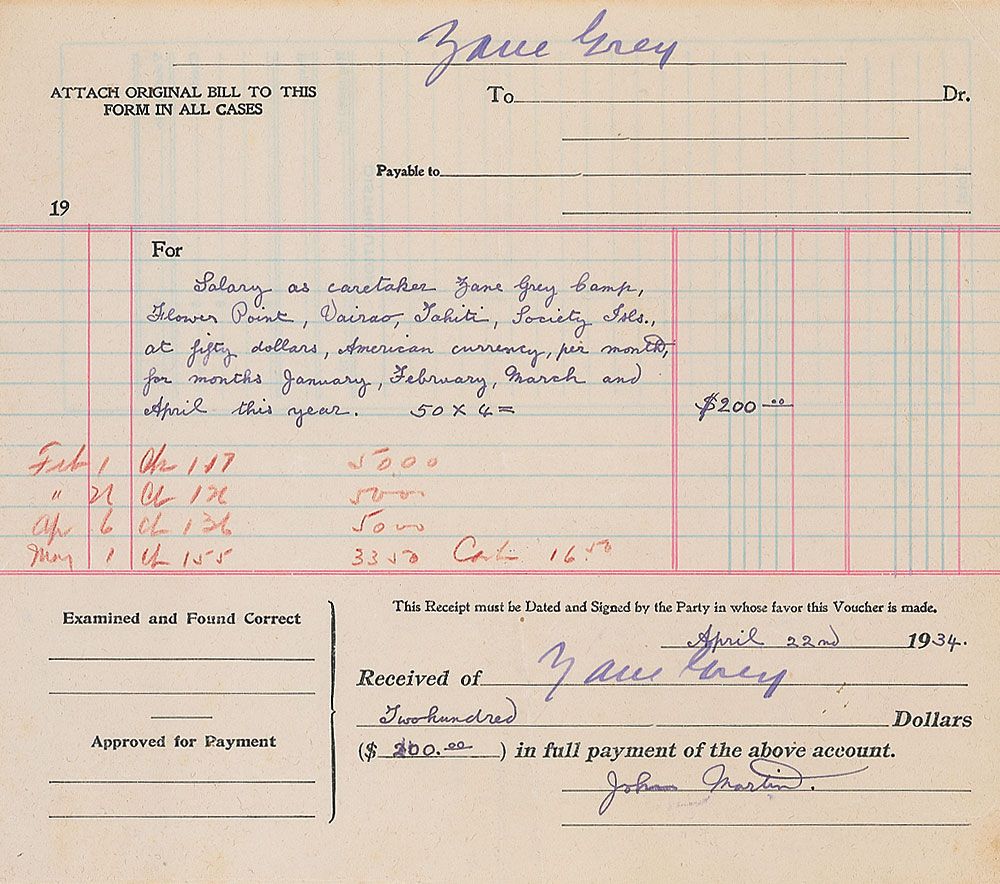 Zane Grey
ATTACH ORIGINAL BILL TO THIS
FORM IN ALL CASES
To Dr.
Payable to
19
For
Salary as caretaker Zane Grey Camp,
Flower Point, Vairao, Tahiti, Society Isls.,
at fifty dollars, American currency, per month,
for months January, February, March and
April this year. 50 x 4 = $200 00
Feb 1 Ch 117 50.00
" 21 Ch 50 00
Ap 6 Ch 136 50 00
May 1 Ch 155 33 50 Cash 16 50
Examined and Found Correct
Approved for Payment
This Receipt must be Dated and Signed by the Party in whose favor this Voucher is made.
April 22nd 1934.
Received of Zane Grey
Two hundred Dollars
($ 200.00 ) in full payment of the above account.
John Martin.